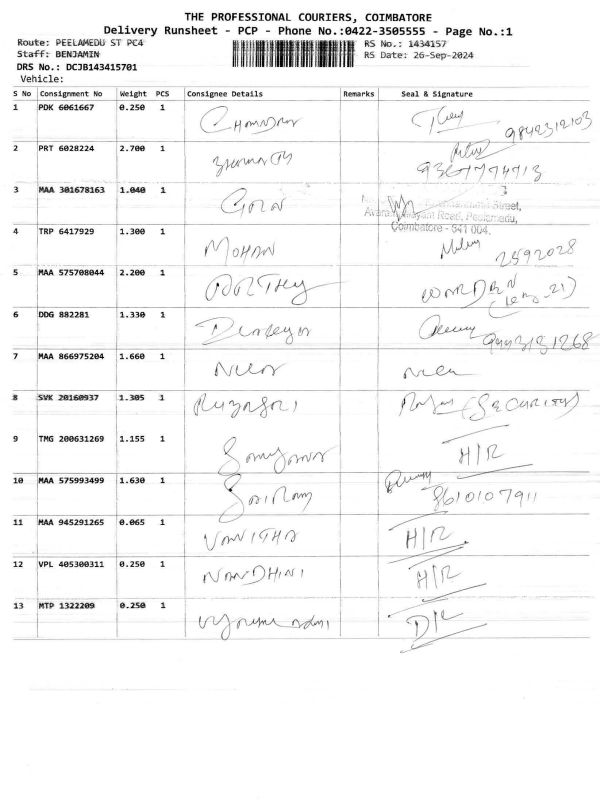 THE PROFESSIONAL COURIERS, COIMBATORE
Delivery Runsheet - PCP - Phone No.:0422-3505555 - Page No.:1
Route: PEELAMEDU ST PC4 RS No.: 1434157
Staff: BENJAMIN RS Date: 26-Sep-2024
DRS No.: DCJB143415701
Vehicle:
S No Consignment No Weight PCS Consignee Details Remarks Seal & Signature
1 PDK 6061667 0.250 1
9842312103
2 PRT 6028224 2.700 1
3 MAA 301678163 1.040 1
Street,
Road, Peelamedu,
Coimbatore - 641 004.
4 TRP 6417929 1.300 1 MOHAN
2592028
5 MAA 575708044 2.200 1 WARDEN
6 DDG 882281 1.330 1
9443131268
7 MAA 866975204 1.660 1
8 SVK 20160937 1.305 1 (SECURITY)
9 TMG 200631269 1.155 1 H/R
10 MAA 575993499 1.630 1 SAIRAM
8610107911
11 MAA 945291265 0.065 1 VANITHA H/R
12 VPL 405300311 0.250 1 NANDHINI H/R
13 MTP 1322209 0.250 1 D/R